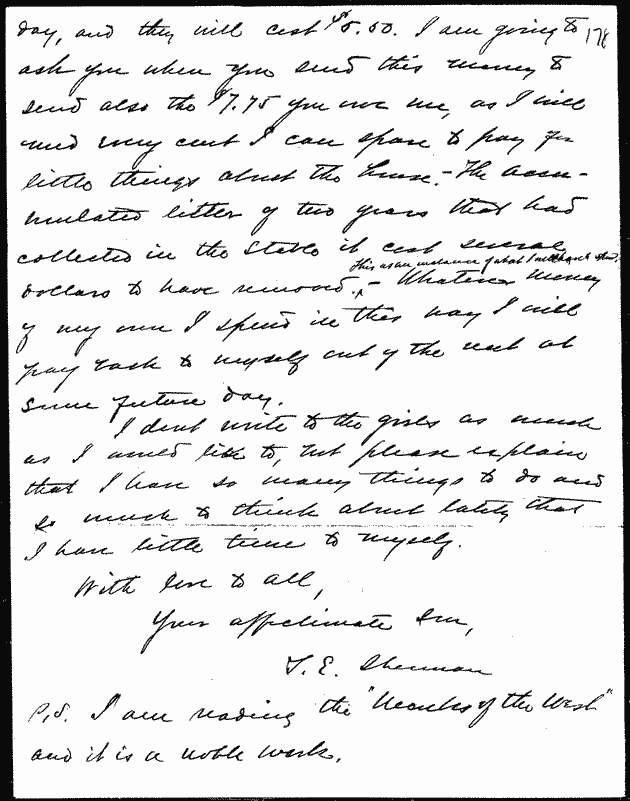 178
day, and they will cost $5.50. I am going to
ask you when you send this money to
send also the $7.75 you owe me, as I will
need every cent I can spare to pay for
little things about the house. - The accu-
mulated litter of two years that had
collected in the stable it cost several
This as an instance of what I
dollars to have removed. - Whatever money
of my own I spend in this way I will
pay back to myself out of the rent at
some future day.
I dont write to the girls as much
as I would like to, but please explain
that I have so many things to do and
so much to think about lately that
I have little time to myself.
With love to all,
Your affectionate Son,
T. E. Sherman
P.S. I am reading the "Monks of the West"
and it is a noble work.